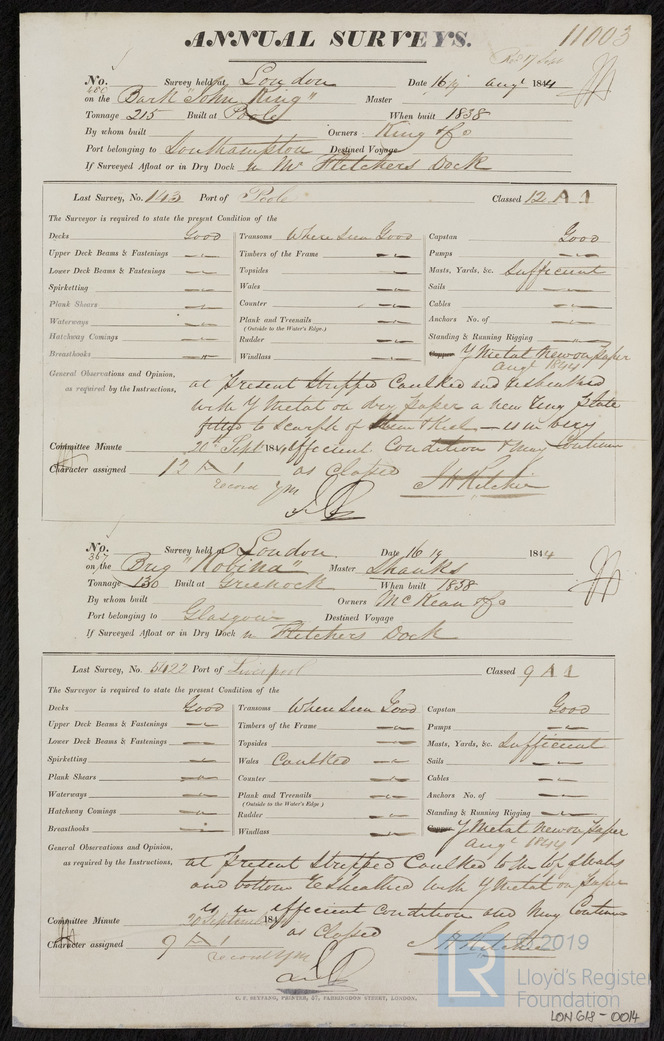 ANNUAL SURVEYS.
11003
No. 400 Survey held at London Date 16 Augt 1844
on the Bark "John King" Master
Tonnage 215 Built at Poole When built 1838
By whom built Owners King & Co
Port belonging to Southampton Destined Voyage
If Surveyed Afloat or in Dry Dock in Mr Fletchers Dock
Last Survey, No. 143 Port of Poole Classed 12 A 1
The Surveyor is required to state the present Condition of the
Decks Good Transoms Where Seen Good Capstan Good
Upper Deck Beams & Fastenings Timbers of the Frame Pumps
Lower Deck Beams & Fastenings Topsides Masts, Yards, &c. Sufficient
Spirketting Wales Sails
Plank Shears Counter Cables
Waterways Plank and Treenails (Outside to the Water's Edge.) Anchors No. of
Hatchway Comings Rudder Standing & Running Rigging
Breasthooks Windlass Copper Y Metal New on Paper
Augt 1844
General Observations and Opinion, as required by the Instructions,
at Present Stripped Caulked and resheathed
with Y Metal on dry Paper a new
fitted to Scarph of Stem & Keel - is in very
Committee Minute 20th Sept 1844 efficient Condition & may Continue
Character assigned 12 A 1 as Classed J H Ritchie
record YM
No. 367 Survey held at London Date 16 1844
on the Brig "Robina" Master Shanks
Tonnage 130 Built at Greenock When built 1838
By whom built Owners McKean & Co
Port belonging to Glasgow Destined Voyage
If Surveyed Afloat or in Dry Dock in Fletchers Dock
Last Survey, No. 5422 Port of Liverpool Classed 9 A 1
The Surveyor is required to state the present Condition of the
Decks Good Transoms When Seen Good Capstan Good
Upper Deck Beams & Fastenings Timbers of the Frame Pumps
Lower Deck Beams & Fastenings Topsides Masts, Yards, &c. Sufficient
Spirketting Wales Caulked Sails
Plank Shears Counter Cables
Waterways Plank and Treenails (Outside to the Water's Edge.) Anchors No. of
Hatchway Comings Rudder Standing & Running Rigging
Breasthooks Windlass Copper Y Metal New on Paper
Augt 1844
General Observations and Opinion, as required by the Instructions,
at Present Stripped Caulked to the top of Wales
and bottom resheathed with Y Metal on Paper
is in efficient condition and May Continue
Committee Minute 20 September 1844
Character assigned 9 A 1 as Classed J H Ritchie
record YM
C. F. SEYFANG, PRINTER, 57, FARRINGDON STREET, LONDON.
© 2019
LR
Lloyd's Register
Foundation
LON 618-0014